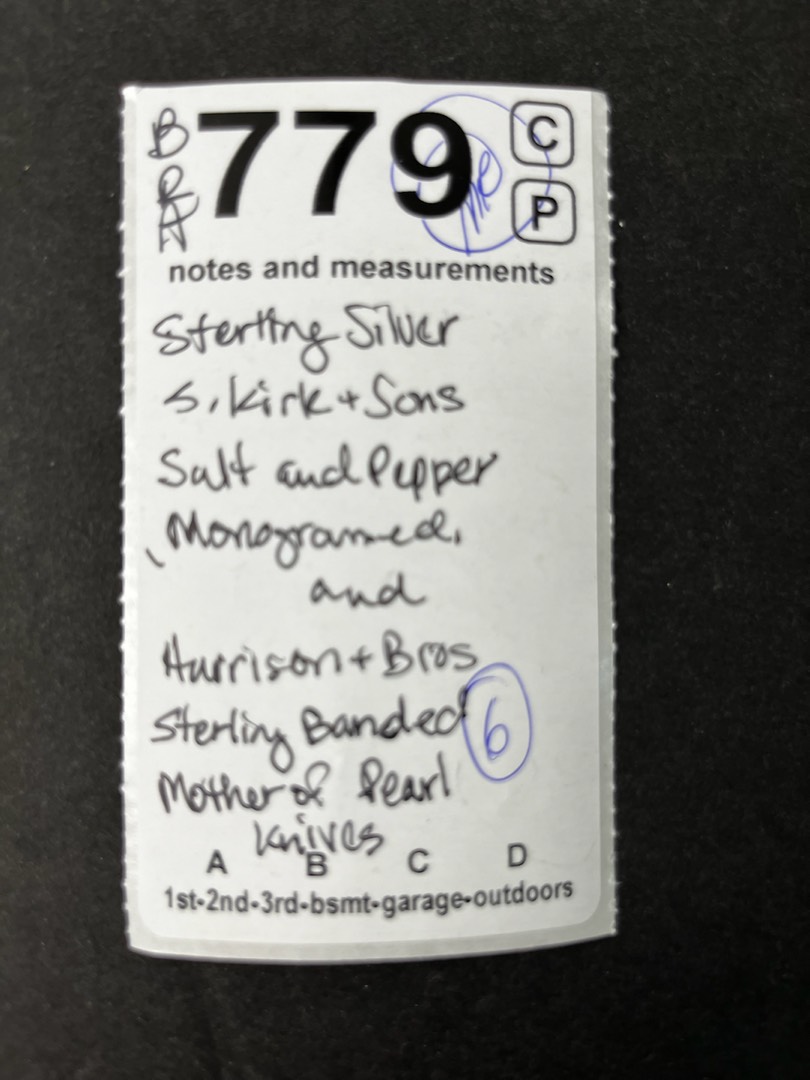 BRA 779 C
P
notes and measurements
Sterling Silver
S. Kirk + Sons
Salt and Pepper
Monogramed,
and
Harrison + Bros
Sterling Banded 6
Mother of Pearl
Knives
A B C D
1st-2nd-3rd-bsmt-garage-outdoors